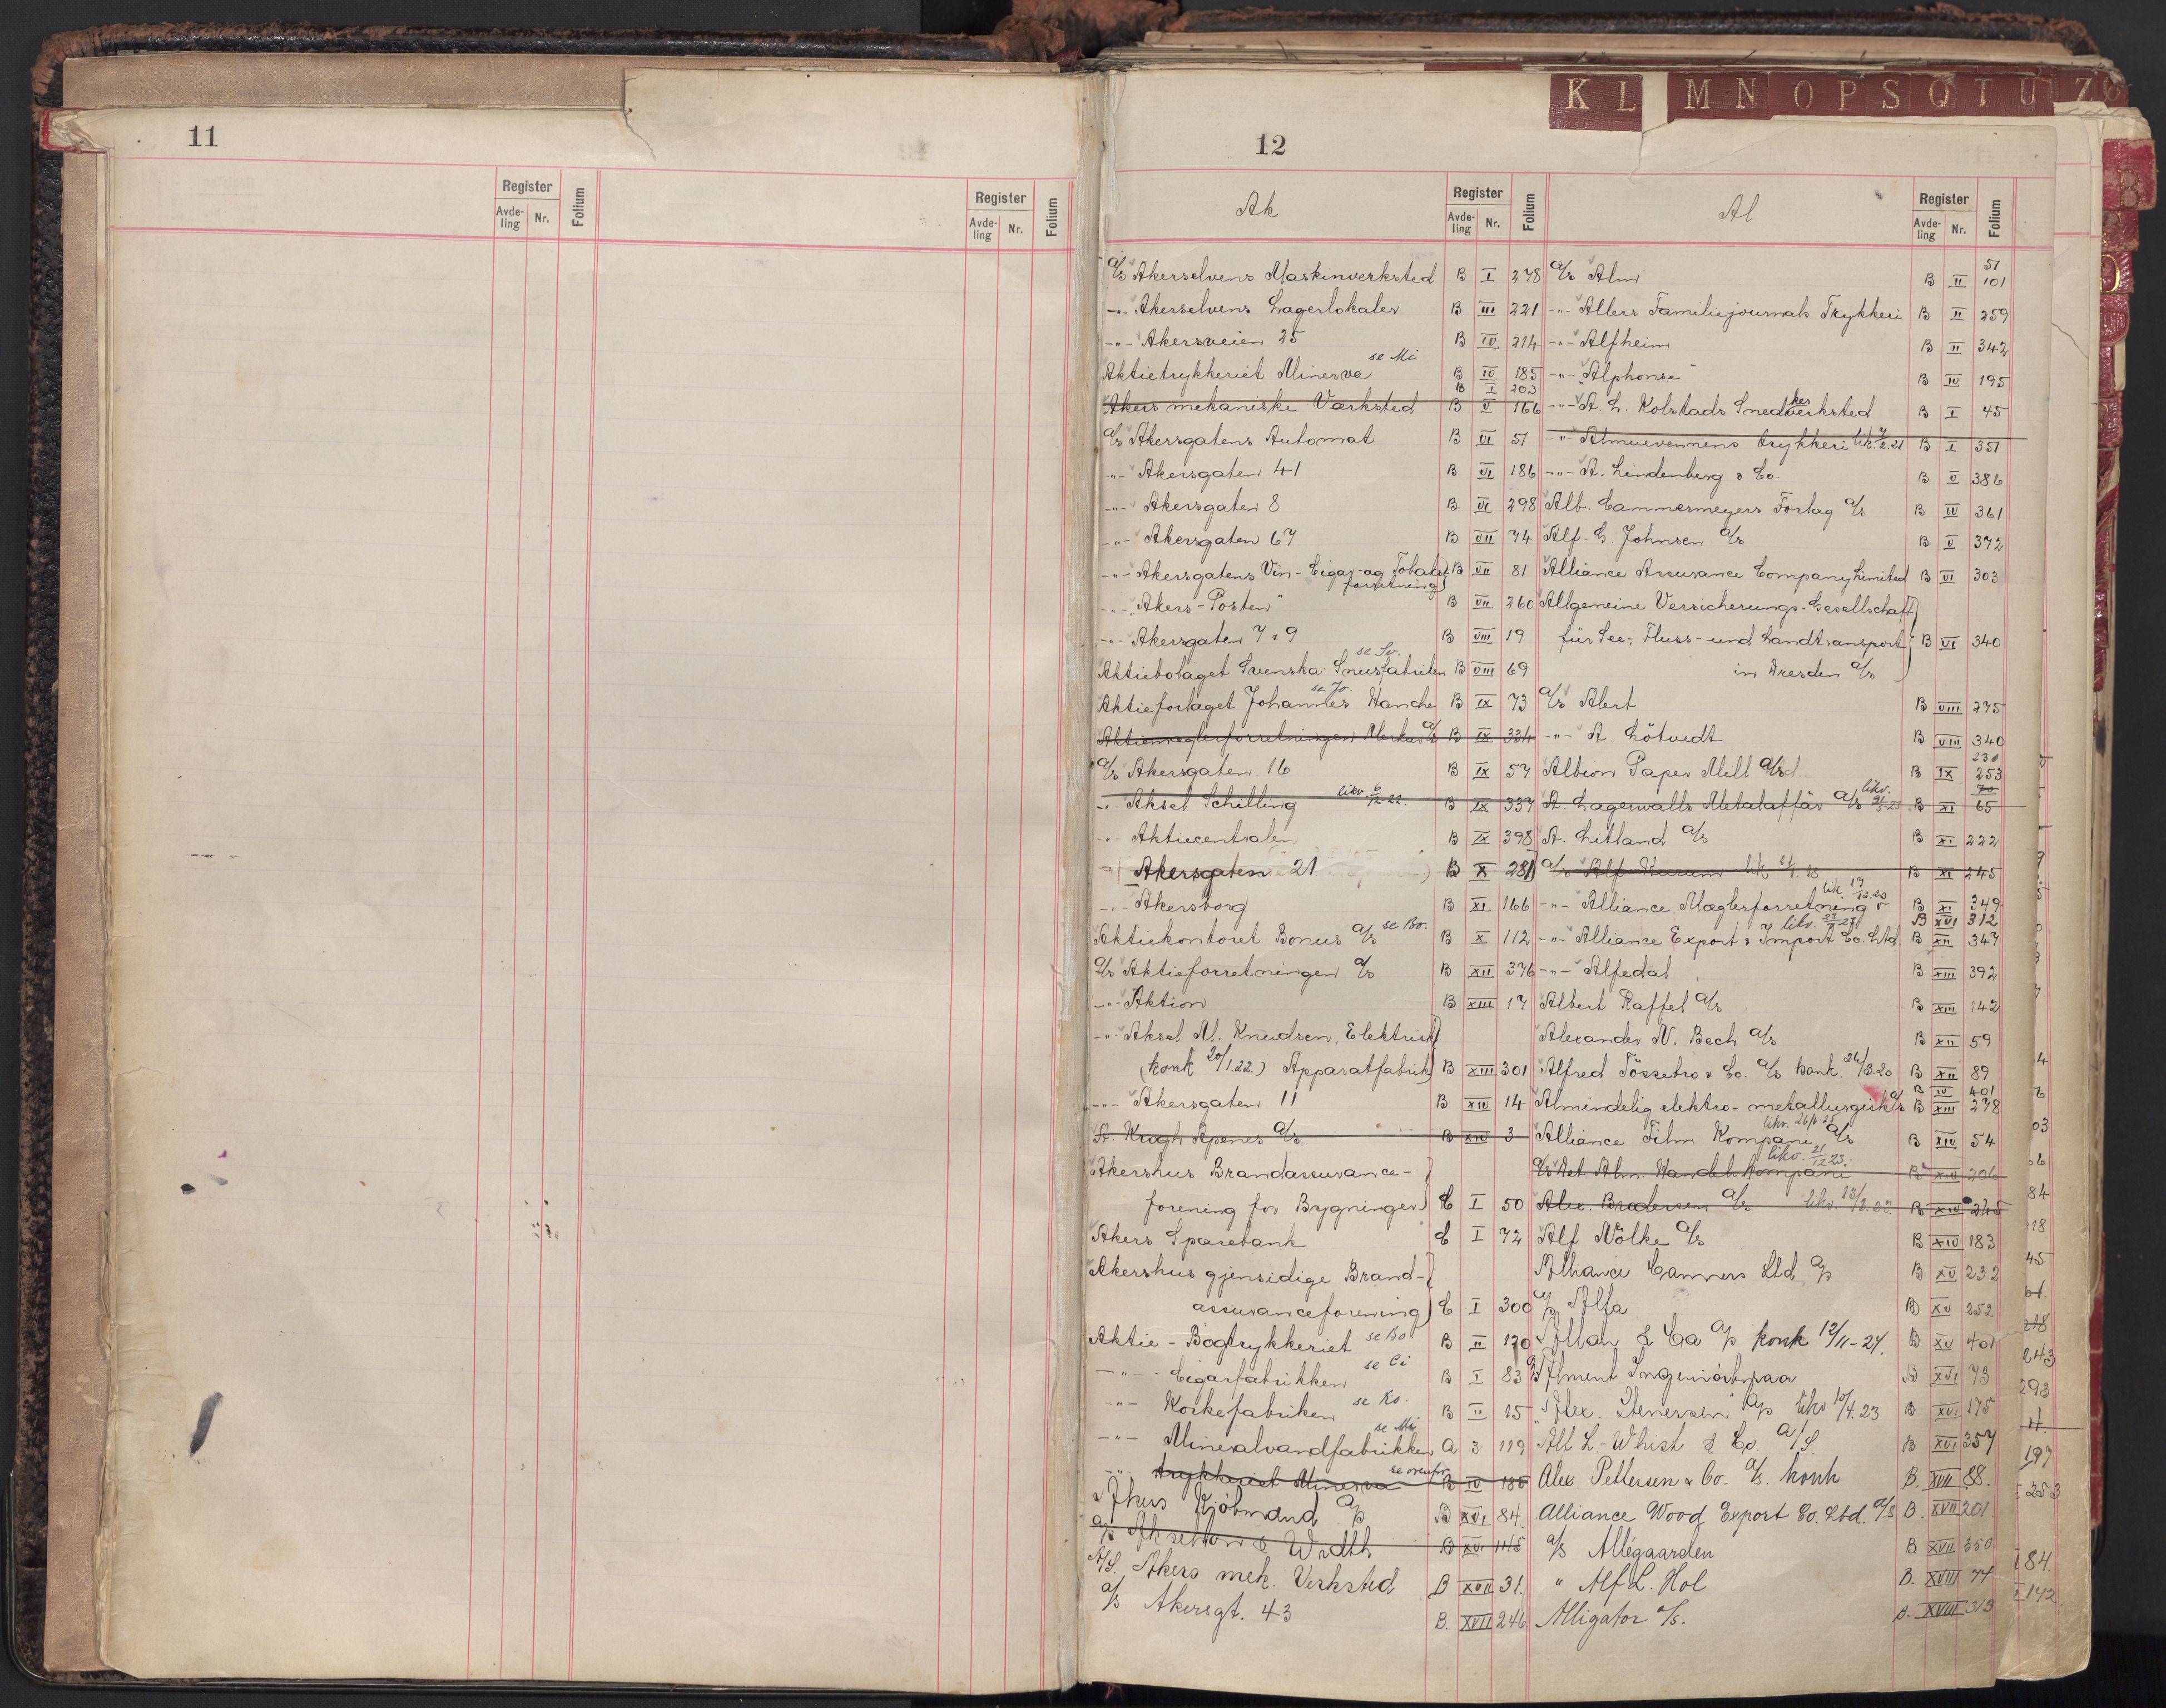 K L M N O P S Q T U Z Ø
11
Register
Avde-
ling
Nr.
Folium
Register
Avde-
ling
Nr.
Folium
12
Ak
Register
Avde-
ling
Nr.
Folium
A/s Akerselvens Maskinverksted B I 278
-"- Akerselvens Lagerlokaler B III 221
-"- Akersveien 25 B IV 214
Aktietrykkeriet Minerva se Mi B IV 185
B I 203
Akers mekaniske Værksted B V 166
A/s Akersgatens Automat B VI 51
-"- Akersgaten 41 B VI 186
-"- Akersgaten 8 B VI 298
-"- Akersgaten 67 B VII 74
-"- Akersgatens Vin- Cigar- og Tobaks- B VII 81
forretning
-"- "Akers-Posten" B VII 260
-"- Akersgaten 7 & 9 B VIII 19
Aktiebolaget Svenska Snusfabriken se Sv. B VIII 69
Aktieforlaget Johannes Hanche se Jo. B IX 73
Aktiemæglerforretningen Merkur A/s B IX 334
A/s Akersgaten 16 B IX 57
-"- Aksel Schilling likv. 6/12 22. B IX 337
-"- Aktiecentralen B IX 398
-"- Akersgaten 21 B X 281
-"- Akersborg B XI 166
Aktiekontoret Bonus A/s se Bo. B X 112
A/s Aktieforretningen A/s B XII 376
-"- Aktion B XIII 17
-"- Aksel M. Knudsen, Elektrisk
(konk 20/1.22.) Apparatfabrik B XIII 301
-"- Akersgaten 11 B XIV 14
A. Krogh Apenes A/s B XIV 3
Akershus Brandassurance-
forening for Bygninger C I 50
Akers Sparebank C I 72
Akershus gjensidige Brand-
assuranceforening C I 300
Aktie-Bogtrykkeriet se Bo B II 170
-"- Cigarfabrikken se Ci B I 83
-"- Korkefabriken se Ko. B II 15
-"- Mineralvandfabrikken se Mi A 3 119
-"- trykkeriet Minerva se ovenfor B IV 185
Akers Kjøbmænd A/s B XVI 84.
A/s Akselson & Wrath B XV 115
A/S. Akers mek. Verksted B XVII 31.
A/s Akersgt. 43 B. XVII 246
Al
Register
Avde-
ling
Nr.
Folium
51
A/s Alm B II 101
-"- Allers Familiejournals Trykkeri B II 259
-"- Alfheim B II 342
-"- "Alphonse" B IV 195
-"- A. L. Kolstads Snedkerverksted B I 45
-"- Almuevennens trykkeri B I 351
-"- A. Lindenberg & Co. B V 386
Alb. Cammermeyers Forlag A/s B IV 361
Alf. G. Johnsen A/s B V 372
Alliance Assurance Company Limited B VI 303
Allgemeine Versicherungs-Gesellschaft
für See-, Fluss- und Landtransport B VI 340
in Dresden A/s
A/s Alert B VIII 275
-"- A. Lötvedt B VIII 340
230
Albion Paper Mill A/s B IX 253
A. Lagerwalls Metalaffär A/s likv. B XI 65
A. Litland A/s B XI 222
A/s B XI 245
-"- Alliance Mæglerforretning lik. 17/12.20 B XI 349
B XVI 312
-"- Alliance Export & Import Co. Ltd B XII 347
-"- Alfedal B XIII 392
Albert Raffel A/s B XIII 142
Alexander N. Bech A/s B XII 59
Alfred Tössebro & Co. A/s konk. 26/3.20 B XII 89
B IV 401
Almindelig elektro-metallurgisk A/s B XIII 278
Alliance Film Kompani A/s B XIV 54
A/s Det Alm. Handelskompani likv. 21/12 23. B XIV 206
Alex. Brodersen A/s B XIV 245
Alf Nölke A/s B XIV 183
Alliance Canners Ltd A/s B XV 232
A/s Alfa B XV 252
Allan & Co A/s konk 12/11-24. B XV 401
B XVI 73
Alex. Stenersen A/s likv 10/4.23 B XVI 175
Alb L. Whist & Co. A/S. B XVI 357
Alex Pettersen & Co. A/s. konk B. XVII 88.
Alliance Wood Export Co. Ltd. A/s B. XVII 201.
A/s Allégaarden B XVII 350
" Alf L. Hol B. XVIII 77
Alligator A/s. B. XVIII 313